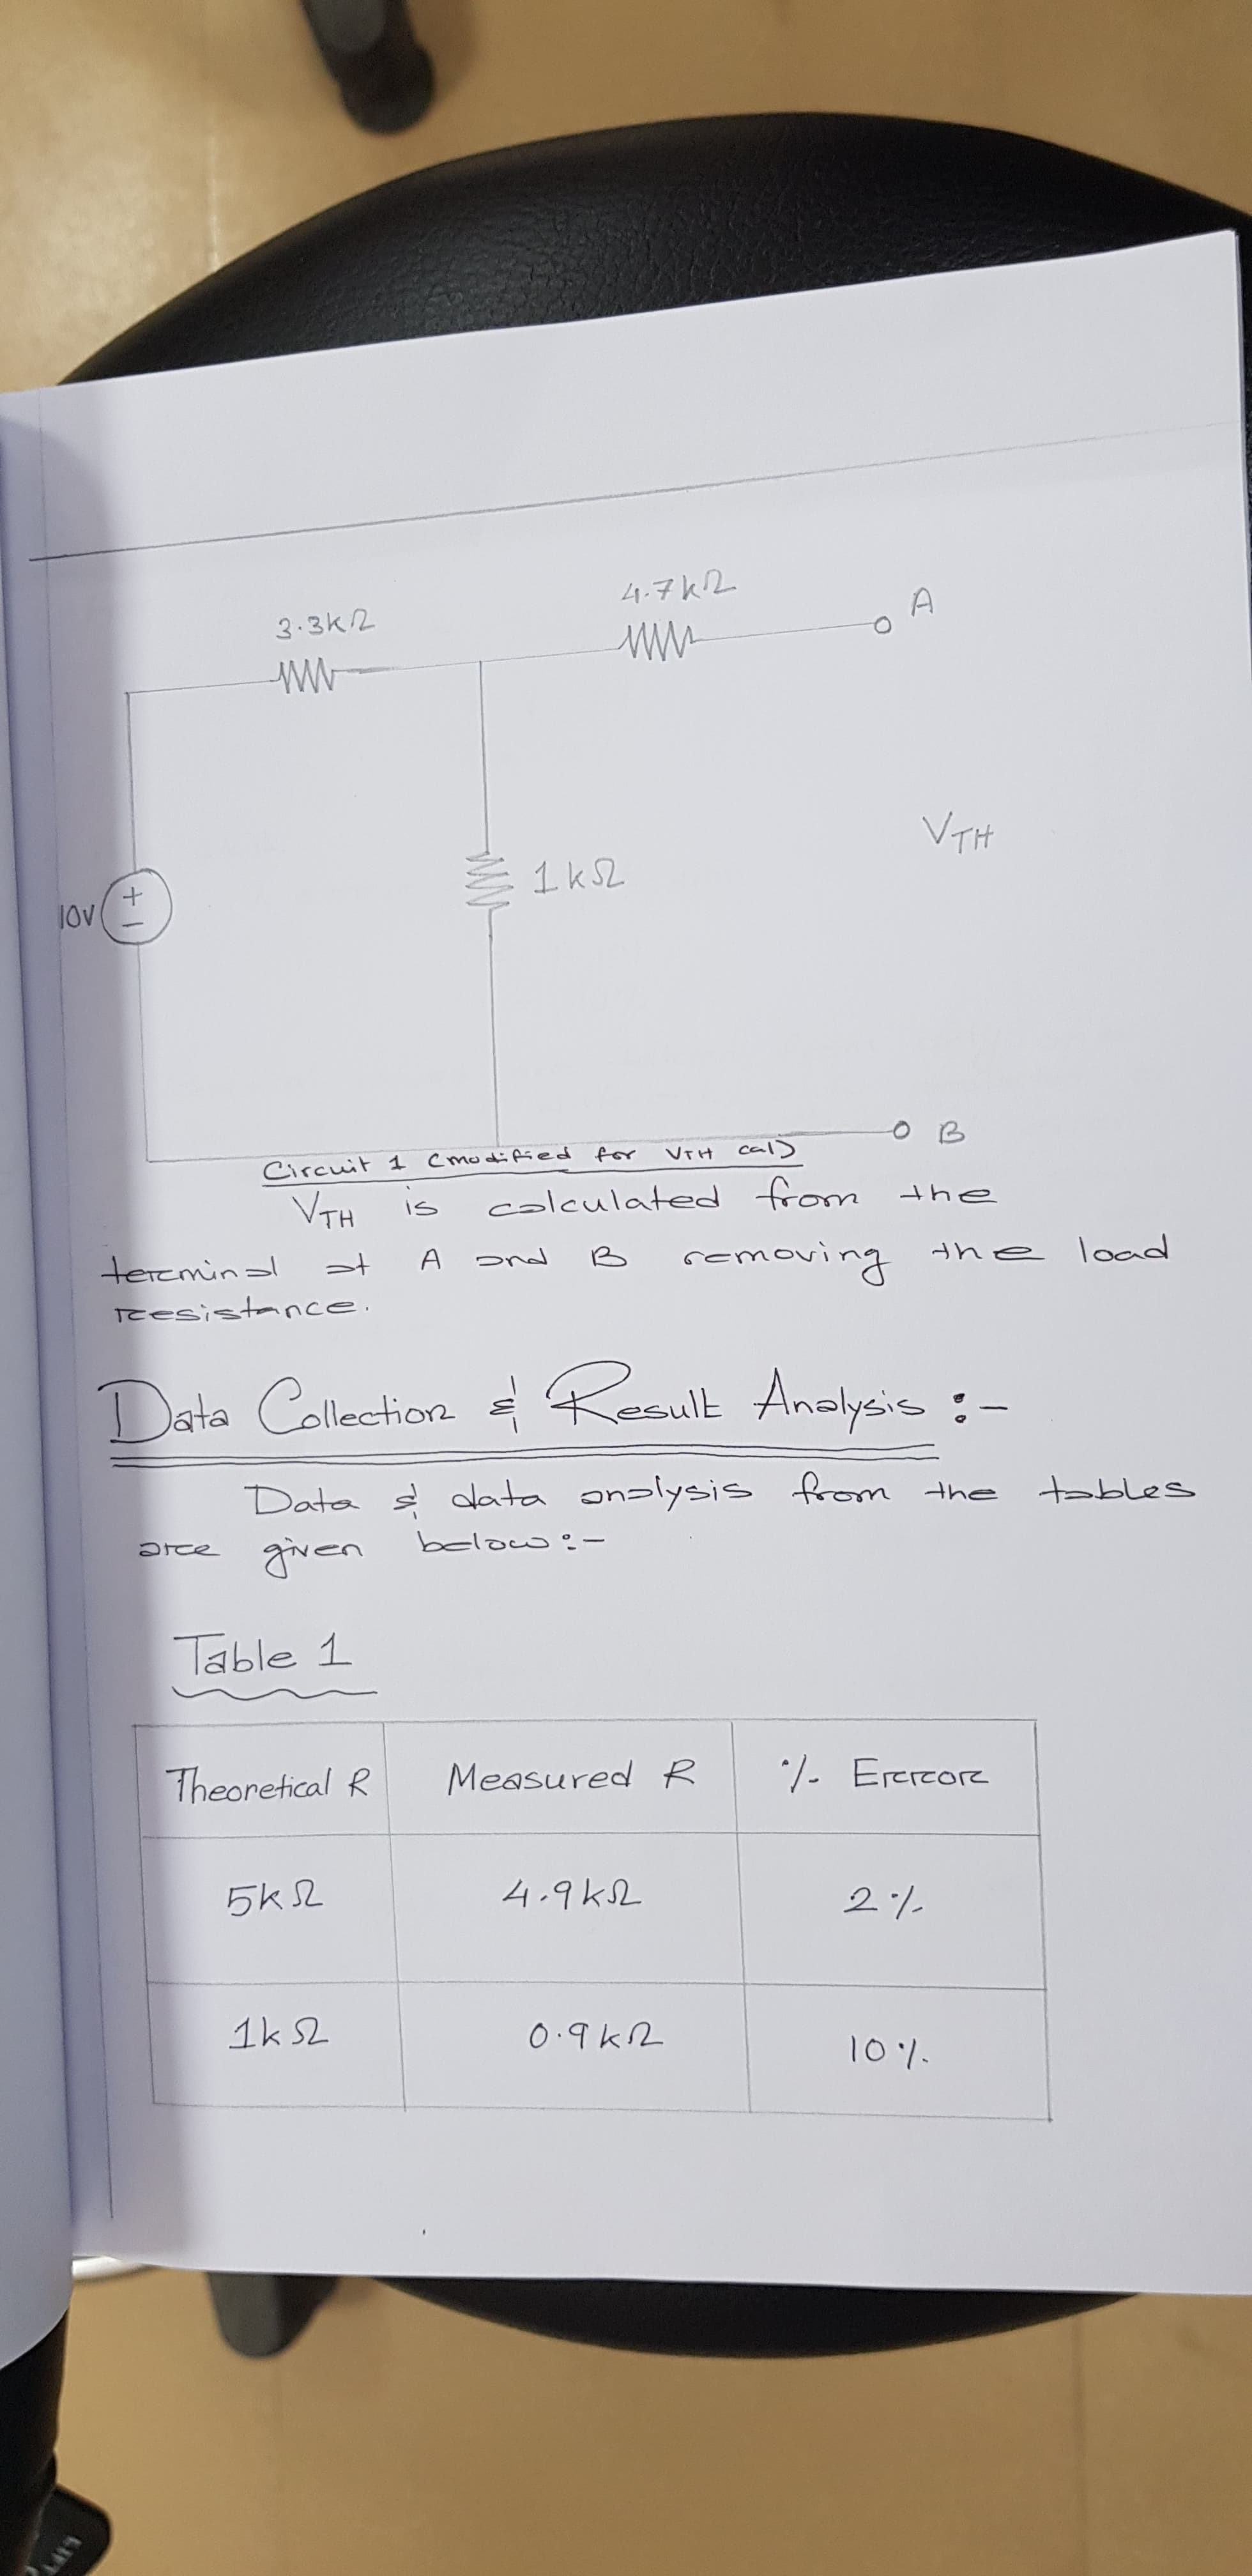 3.3kΩ
4.7kΩ
A
10V
+
−
1kΩ
V_TH
B
Circuit 1 (modified for VTH cal)
VTH is calculated from the
terminal at A and B removing the load
resistance.
Data Collection & Result Analysis :-
Data & data analysis from the tables
are given below:-
Table 1
Theoretical R Measured R % Error
5kΩ 4.9kΩ 2%
1kΩ 0.9kΩ 10%